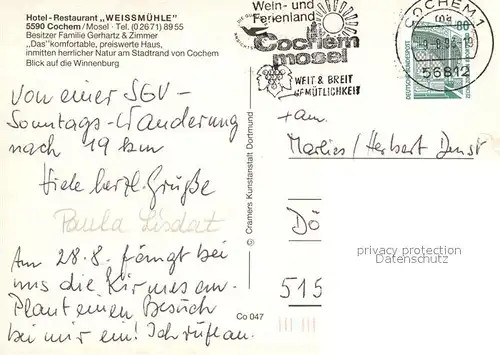 Hotel-Restaurant „WEISSMÜHLE"
5590 Cochem/Mosel · Tel. (0 26 71) 89 55
Besitzer Familie Gerhartz & Zimmer
„Das" komfortable, preiswerte Haus,
inmitten herrlicher Natur am Stadtrand von Cochem
Blick auf die Winnenburg
Wein- und
Ferienland
Cochem
mosel
WEIT & BREIT
GEMÜTLICHKEIT
COCHEM 1
56812
80
DEUTSCHE BUNDESPOST
Von einer SGV-
Sonntags-Wanderung
nach 19 km
Viele herzl. Grüße
Paula Lisdat
Am 28.8. fängt bei
uns die Kirmes an.
Plant einen Besuch
bei mir ein! Ich rufe an.
© Cramers Kunstanstalt Dortmund
Co 047
Fam.
Marlies / Herbert
Dö
515
privacy protection
Datenschutz